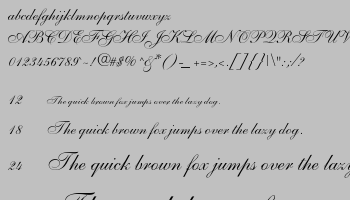 abcdefghijklmnopqrstuvwxyz
ABCDEFGHIJKLMNOPQRSTUV
0123456789
12 The quick brown fox jumps over the lazy dog.
18 The quick brown fox jumps over the lazy dog.
24 The quick brown fox jumps over the lazy